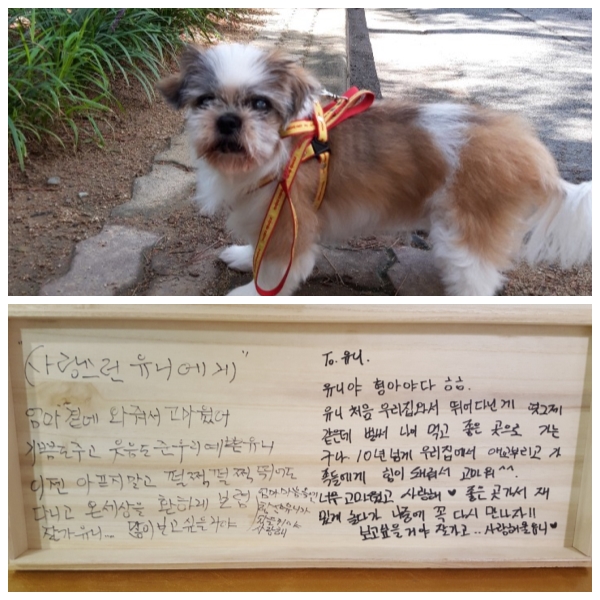 "사랑스런 유니에게"
엄마 곁에 와줘서 고마웠어
기쁨을 주고 웃음을 준 우리 예쁜 유니
이젠 아프지 말고 펄쩍 펄쩍 뛰어도
다니고 온세상을 환하게 보렴
잘가 유니... 많이 보고 싶을거야
사랑해
To. 유니.
유니야 형아야다 ㅎㅎ.
유니 처음 우리집와서 뛰어다닌게 엊그제
같은데 벌써 나이 먹고 좋은 곳으로 가는
구나 10년넘게 우리집에서 애교부리고 가
족들에게 힘이 돼줘서 고마워^^
너무 고마웠고 사랑해 ♥ 좋은 곳가서 재
밌게 놀다가 나중에 꼭 다시 만나자!!
보고싶을거야 잘가고.. 사랑해 울유니♥